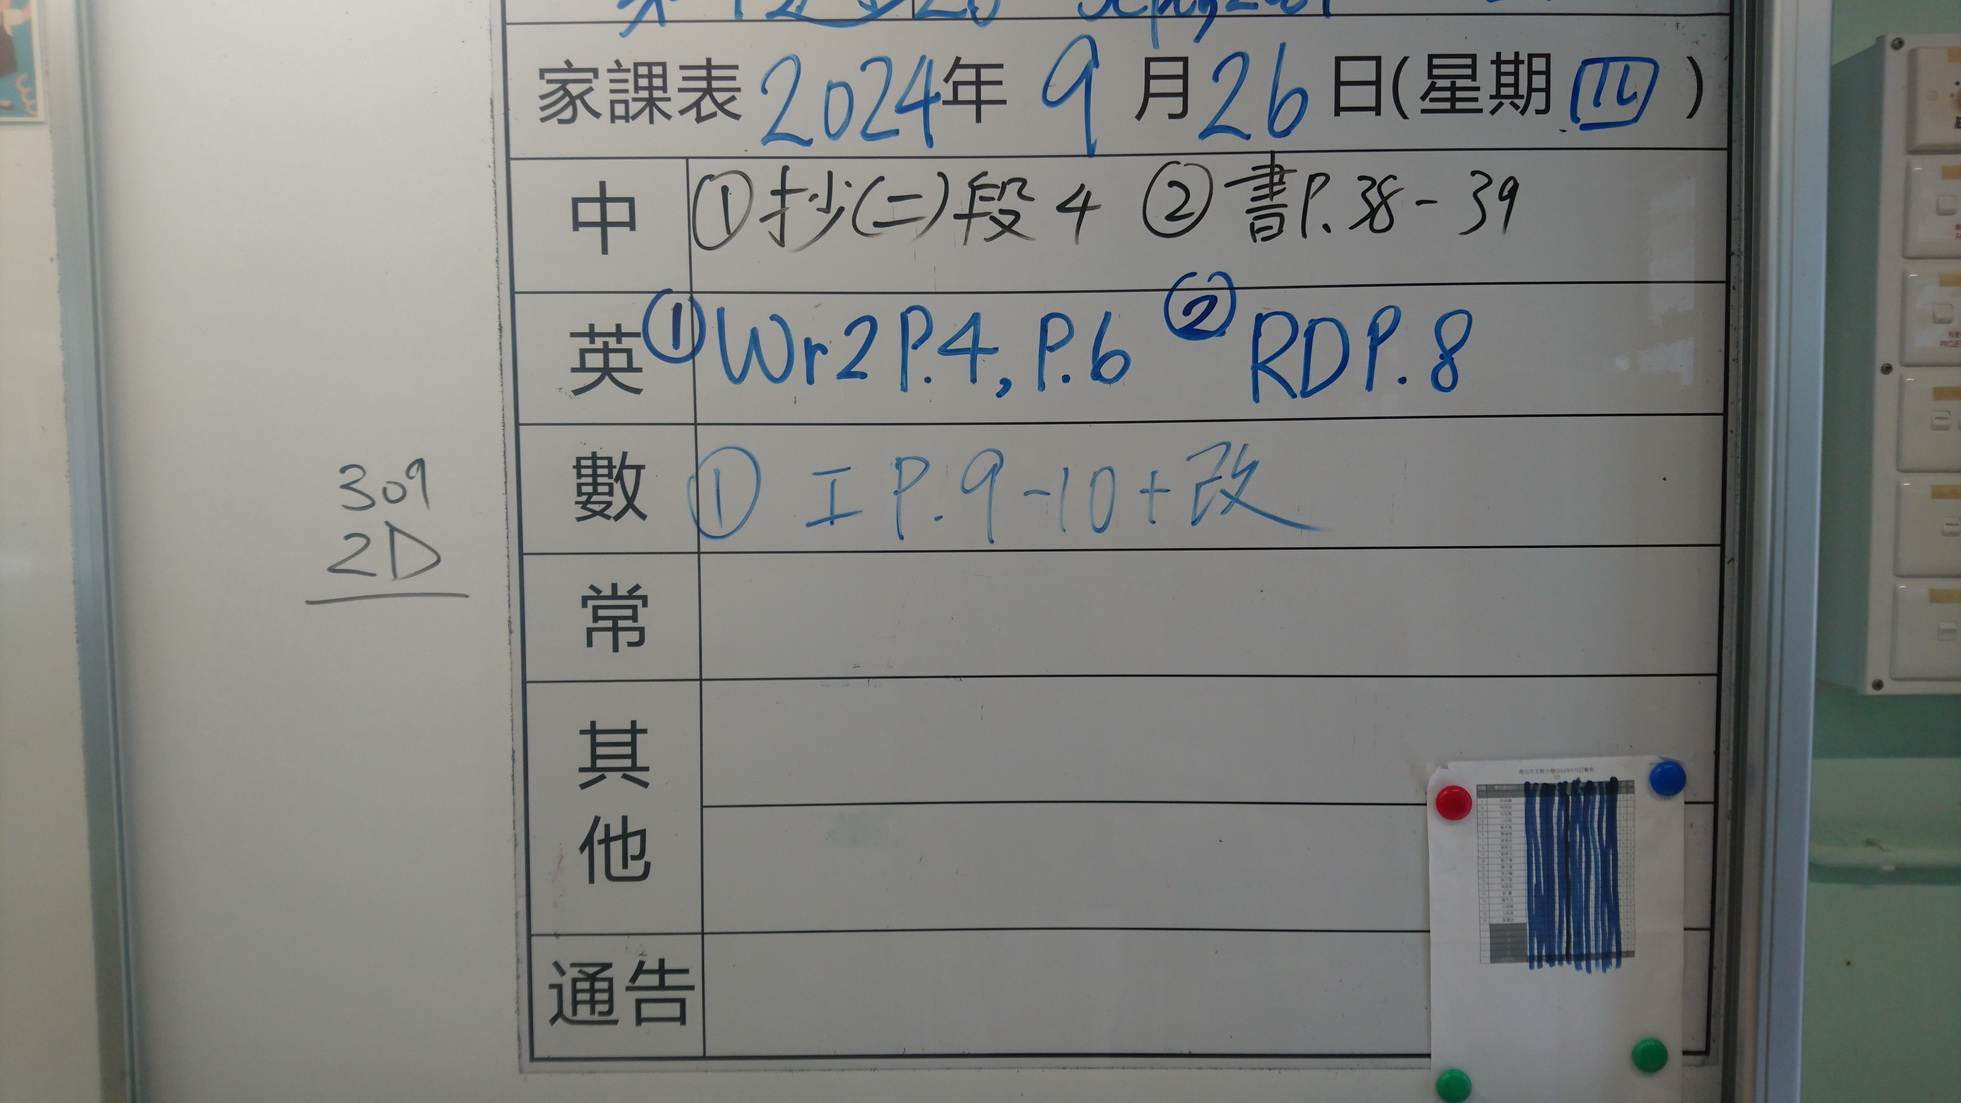 家課表 2024年 9月26日(星期四)
中 ①抄(二)段4 ②書P.38-39
英 ①Wr2 P.4, P.6 ②RD P.8
數 ① 工 P.9-10+改
309
2D
常
其他
通告